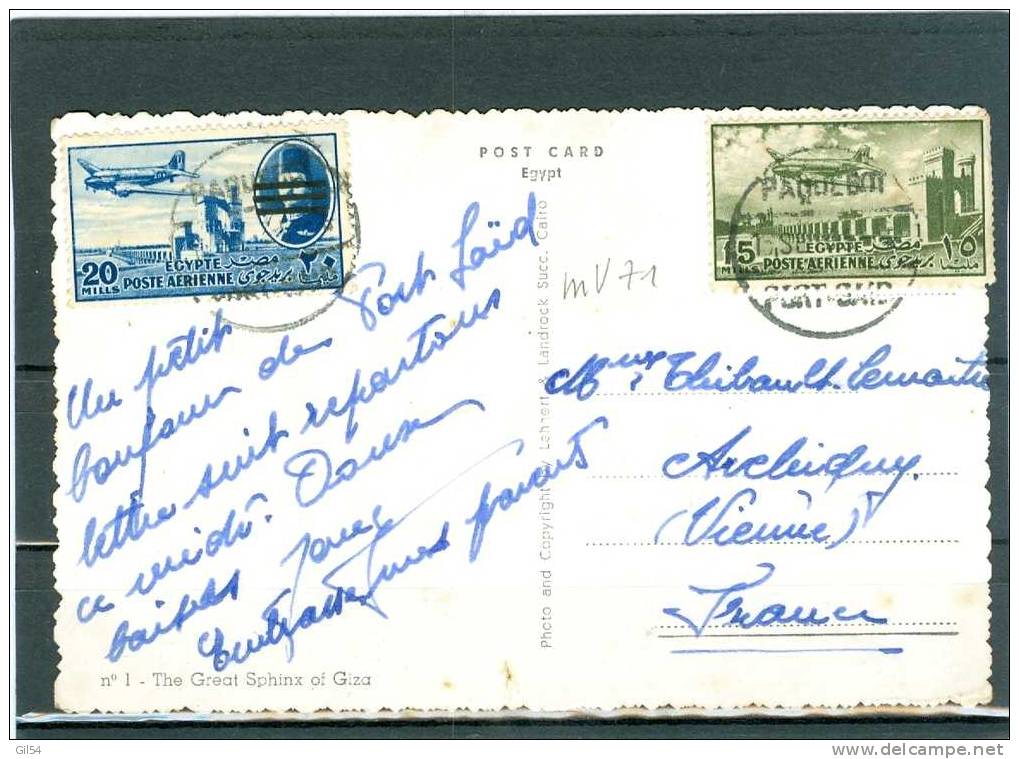 POST CARD
Egypt
PAQUEBOT
20
MILLS
EGYPTE مصر
POSTE AERIENNE بريد جوى
٢٠
مليما
PAQUEBOT
15
MILLS
EGYPTE مصر
POSTE AERIENNE بريد جوى
١٥
مليما
PORT-SAID
Un petit
bonjour de Port Saïd
lettre suit repartons
a midi. Douces
baises
Embrasse parents
mV71
Photo and Copyright by Lehnert & Landrock Succ. Cairo
Thibault Lemaitre
Archigny
(Vienne)
France
nº 1 - The Great Sphinx of Giza
Gil54
www.delcampe.net